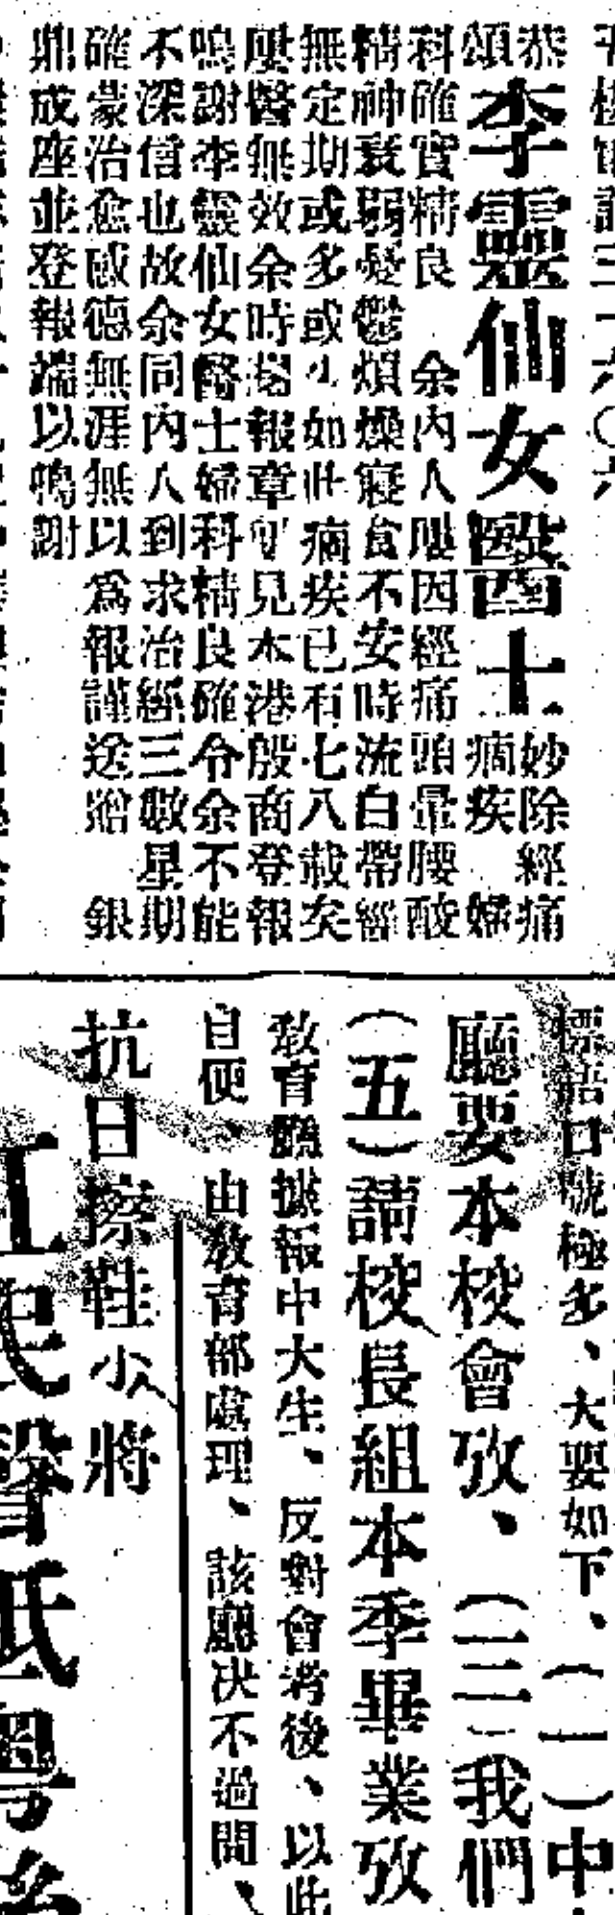 恭頌
李靈仙女醫士
妙除經痛
痼疾 婦
科確實精良 余內人因經痛頭暈腰酸
精神衰弱憂鬱煩燥寢食不安時流白帶經
無定期或多或少如此痼疾已有七八載矣
屢醫無效余時揭報章見本港殷商登報
鳴謝李靈仙女醫士婦科精良確令余不能
不深信也故余同內人到求治經三數星期
確蒙治愈感德無涯無以爲報謹送贈 銀
鼎成座並登報端以鳴謝
標語口號極多、大要如下、(一)中
廳要本校會攷、(三)我們
(五)請校長組本季畢業攷
教育廳據報中大生、反對會考後、以此
自便、由教育部處理、該廳决不過問、
抗日擦鞋少將